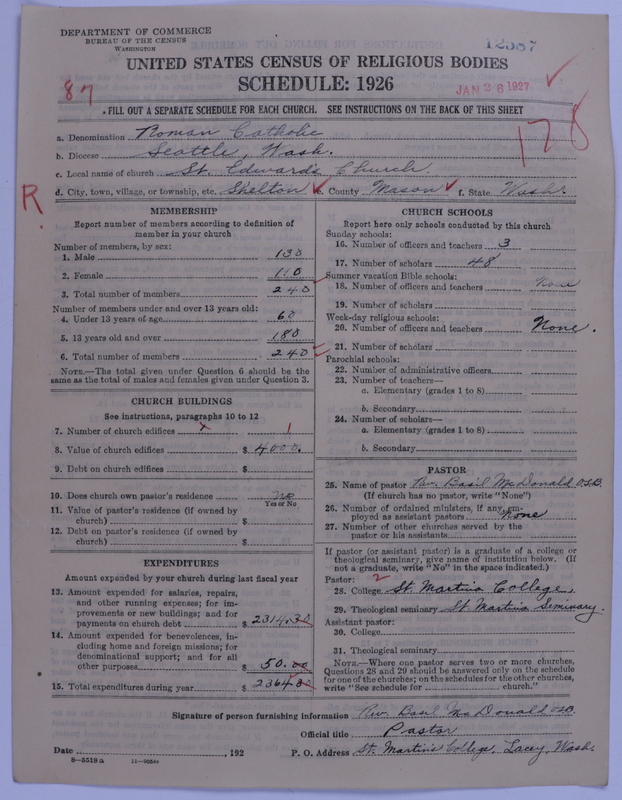 DEPARTMENT OF COMMERCE
BUREAU OF THE CENSUS
WASHINGTON
12587
UNITED STATES CENSUS OF RELIGIOUS BODIES
SCHEDULE: 1926
JAN 26 1927
87
178
FILL OUT A SEPARATE SCHEDULE FOR EACH CHURCH. SEE INSTRUCTIONS ON THE BACK OF THIS SHEET
a. Denomination Roman Catholic
b. Diocese Seattle, Wash.
c. Local name of church St. Edward's Church
d. City, town, village, or township, etc. Shelton e. County Mason f. State Wash.
R.
MEMBERSHIP
Report number of members according to definition of member in your church
Number of members, by sex:
1. Male 130
2. Female 110
3. Total number of members 240
Number of members under and over 13 years old:
4. Under 13 years of age 60
5. 13 years old and over 180
6. Total number of members 240
NOTE.—The total given under Question 6 should be the same as the total of males and females given under Question 3.
CHURCH BUILDINGS
See instructions, paragraphs 10 to 12
7. Number of church edifices x 1
8. Value of church edifices $ 4000.
9. Debt on church edifices $
10. Does church own pastor's residence No
Yes or No
11. Value of pastor's residence (if owned by church) $
12. Debt on pastor's residence (if owned by church) $
EXPENDITURES
Amount expended by your church during last fiscal year
13. Amount expended for salaries, repairs, and other running expenses; for improvements or new buildings; and for payments on church debt $ 2314.30
14. Amount expended for benevolences, including home and foreign missions; for denominational support; and for all other purposes $ 50.00
15. Total expenditures during year $ 2364.30
CHURCH SCHOOLS
Report here only schools conducted by this church
Sunday schools:
16. Number of officers and teachers 3
17. Number of scholars 48
Summer vacation Bible schools:
18. Number of officers and teachers None
19. Number of scholars
Week-day religious schools:
20. Number of officers and teachers None.
21. Number of scholars
Parochial schools:
22. Number of administrative officers
23. Number of teachers—
a. Elementary (grades 1 to 8)
b. Secondary
24. Number of scholars—
a. Elementary (grades 1 to 8)
b. Secondary
PASTOR
25. Name of pastor Rev. Basil McDonald O.S.B.
(If church has no pastor, write "None")
26. Number of ordained ministers, if any, employed as assistant pastors None
27. Number of other churches served by the pastor or his assistants
If pastor (or assistant pastor) is a graduate of a college or theological seminary, give name of institution below. (If not a graduate, write "No" in the space indicated.)
Pastor: 2
28. College St. Martins College
29. Theological seminary St. Martins Seminary.
Assistant pastor:
30. College
31. Theological seminary
NOTE.—Where one pastor serves two or more churches, Questions 28 and 29 should be answered only on the schedule for one of the churches; on the schedules for the other churches, write "See schedule for church."
Signature of person furnishing information Rev. Basil McDonald O.S.B.
Official title Pastor
Date , 192
P. O. Address St. Martin's College, Lacey, Wash.
8—5518a